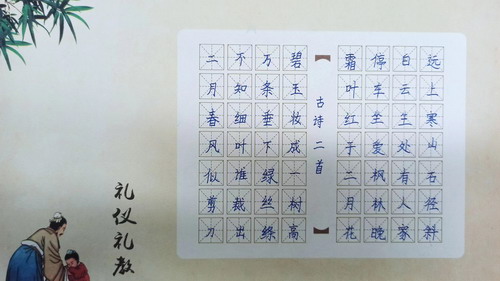 远上寒山石径斜
白云生处有人家
停车坐爱枫林晚
霜叶红于二月花
古诗二首
碧玉妆成一树高
万条垂下绿丝绦
不知细叶谁裁出
二月春风似剪刀
礼仪礼教